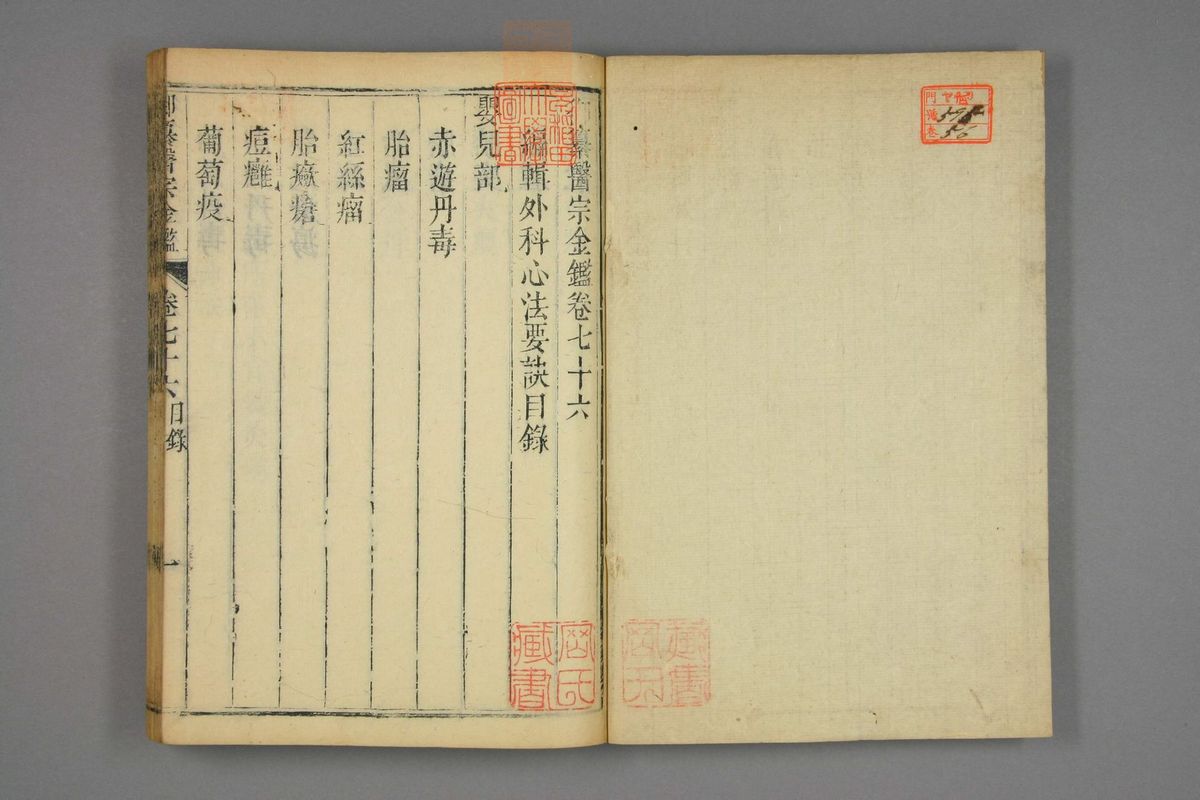 纂醫宗金鑑卷七十六
編輯外科心法要訣目錄
嬰兒部
赤遊丹毒
胎瘤
紅絲瘤
胎㾵瘡
痘癰
葡萄疫
御纂醫宗金鑑 卷七十六 目錄 一
藏書
門
號
卷